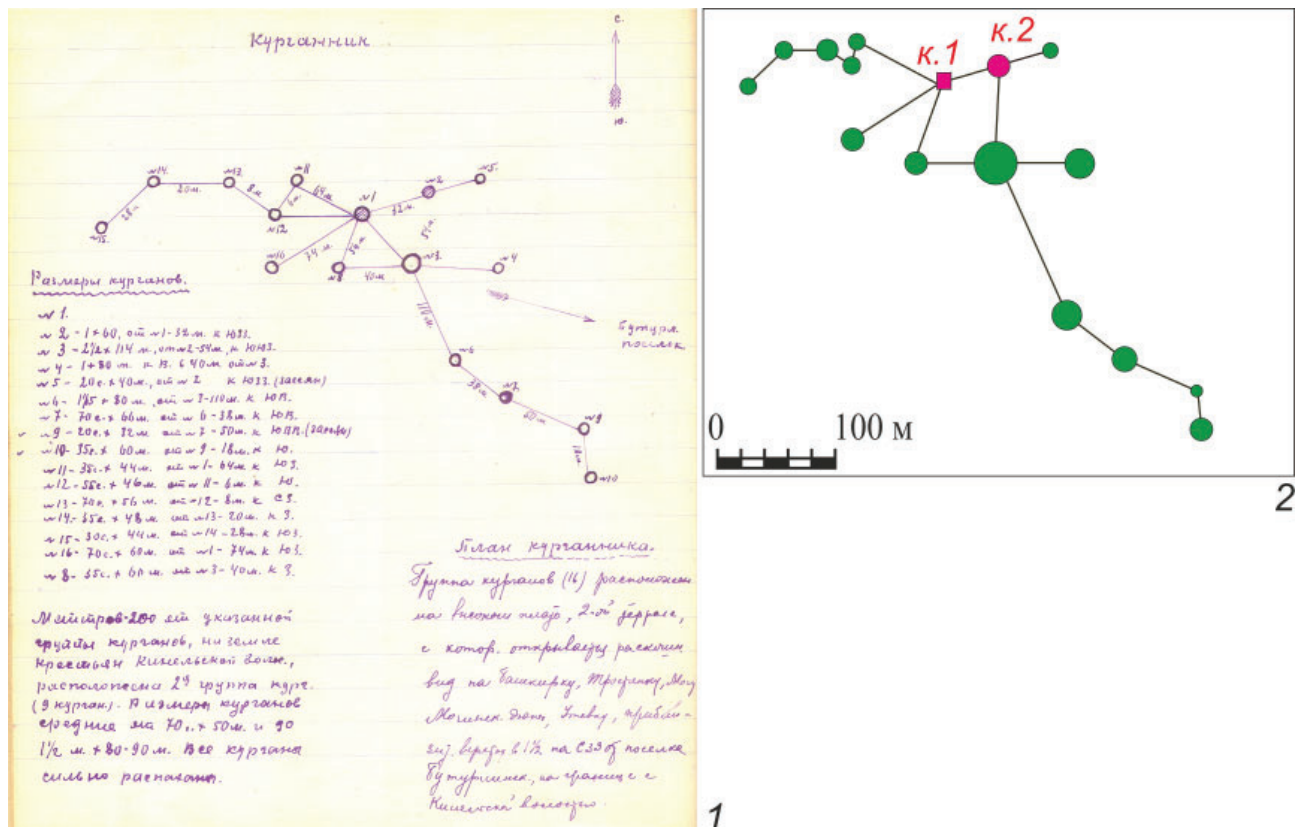 Курганник
с.
ю.
№14.
№13.
№11
№1
№2
№5.
20м.
8м.
6м.
64м.
32м.
28м.
№15.
№12
№16
74м.
56м.
54м.
№8
40м.
№3.
№4
110м.
№6
38м.
№7.
50м.
№9
18м.
№10
Бутурл.
поселок
Размеры курганов.
№1.
№2 - 1+60, от №1-32м. к ЮЗЗ.
№3 - 2½ + 114 м, от №2-54м, к ЮЮЗ.
№4 - 1+80 м. к В. 640м от №3.
№5 - 20с.+40м., от №2 к ЮЗЗ. (засеян)
№6 - +80 м., от №3-110м. к ЮВ.
№7 - 70с.+66м. от №6-38м. к ЮВ.
№9 - 20с.+32м от №7-50м. к ЮВВ. (засеян)
№10 - 35с.+60м. от №9-18м. к Ю.
№11 - 35с.+44м. от №1-64м. к ЮЗ.
№12 - 55с.+46м. от №11-6м. к Ю.
№13 - 70с.+56м. от №12-8м. к СЗ.
№14 - 55с.+48м. от №13-20м. к З.
№15 - 30с.+44м. от №14-28м. к ЮЗ.
№16 - 70с.+60м. от №1-74м. к ЮЗ.
№8 - 55с.+60м. от №3-40м. к З.
Метров 200 от указанной
группы курганов, на земле
крестьян Кинельской волн.,
расположена 2я группа кург.
(9 курган). Размеры курганов
средние на 70с.+50м. и до
1½ м.+80-90м. Все курганы
сильно распаханы.
План курганника.
Группа курганов (16) расположен
на высоком плато, 2-ой террасе,
с котор. открывается
вид на Башкирку,
Могинск. дюны, Утевку,
верстах в 1½ на СЗЗ от поселка
Бутурлинск., на границе с
Кинельской волостью.
1
к.1
к.2
0 100 м
2